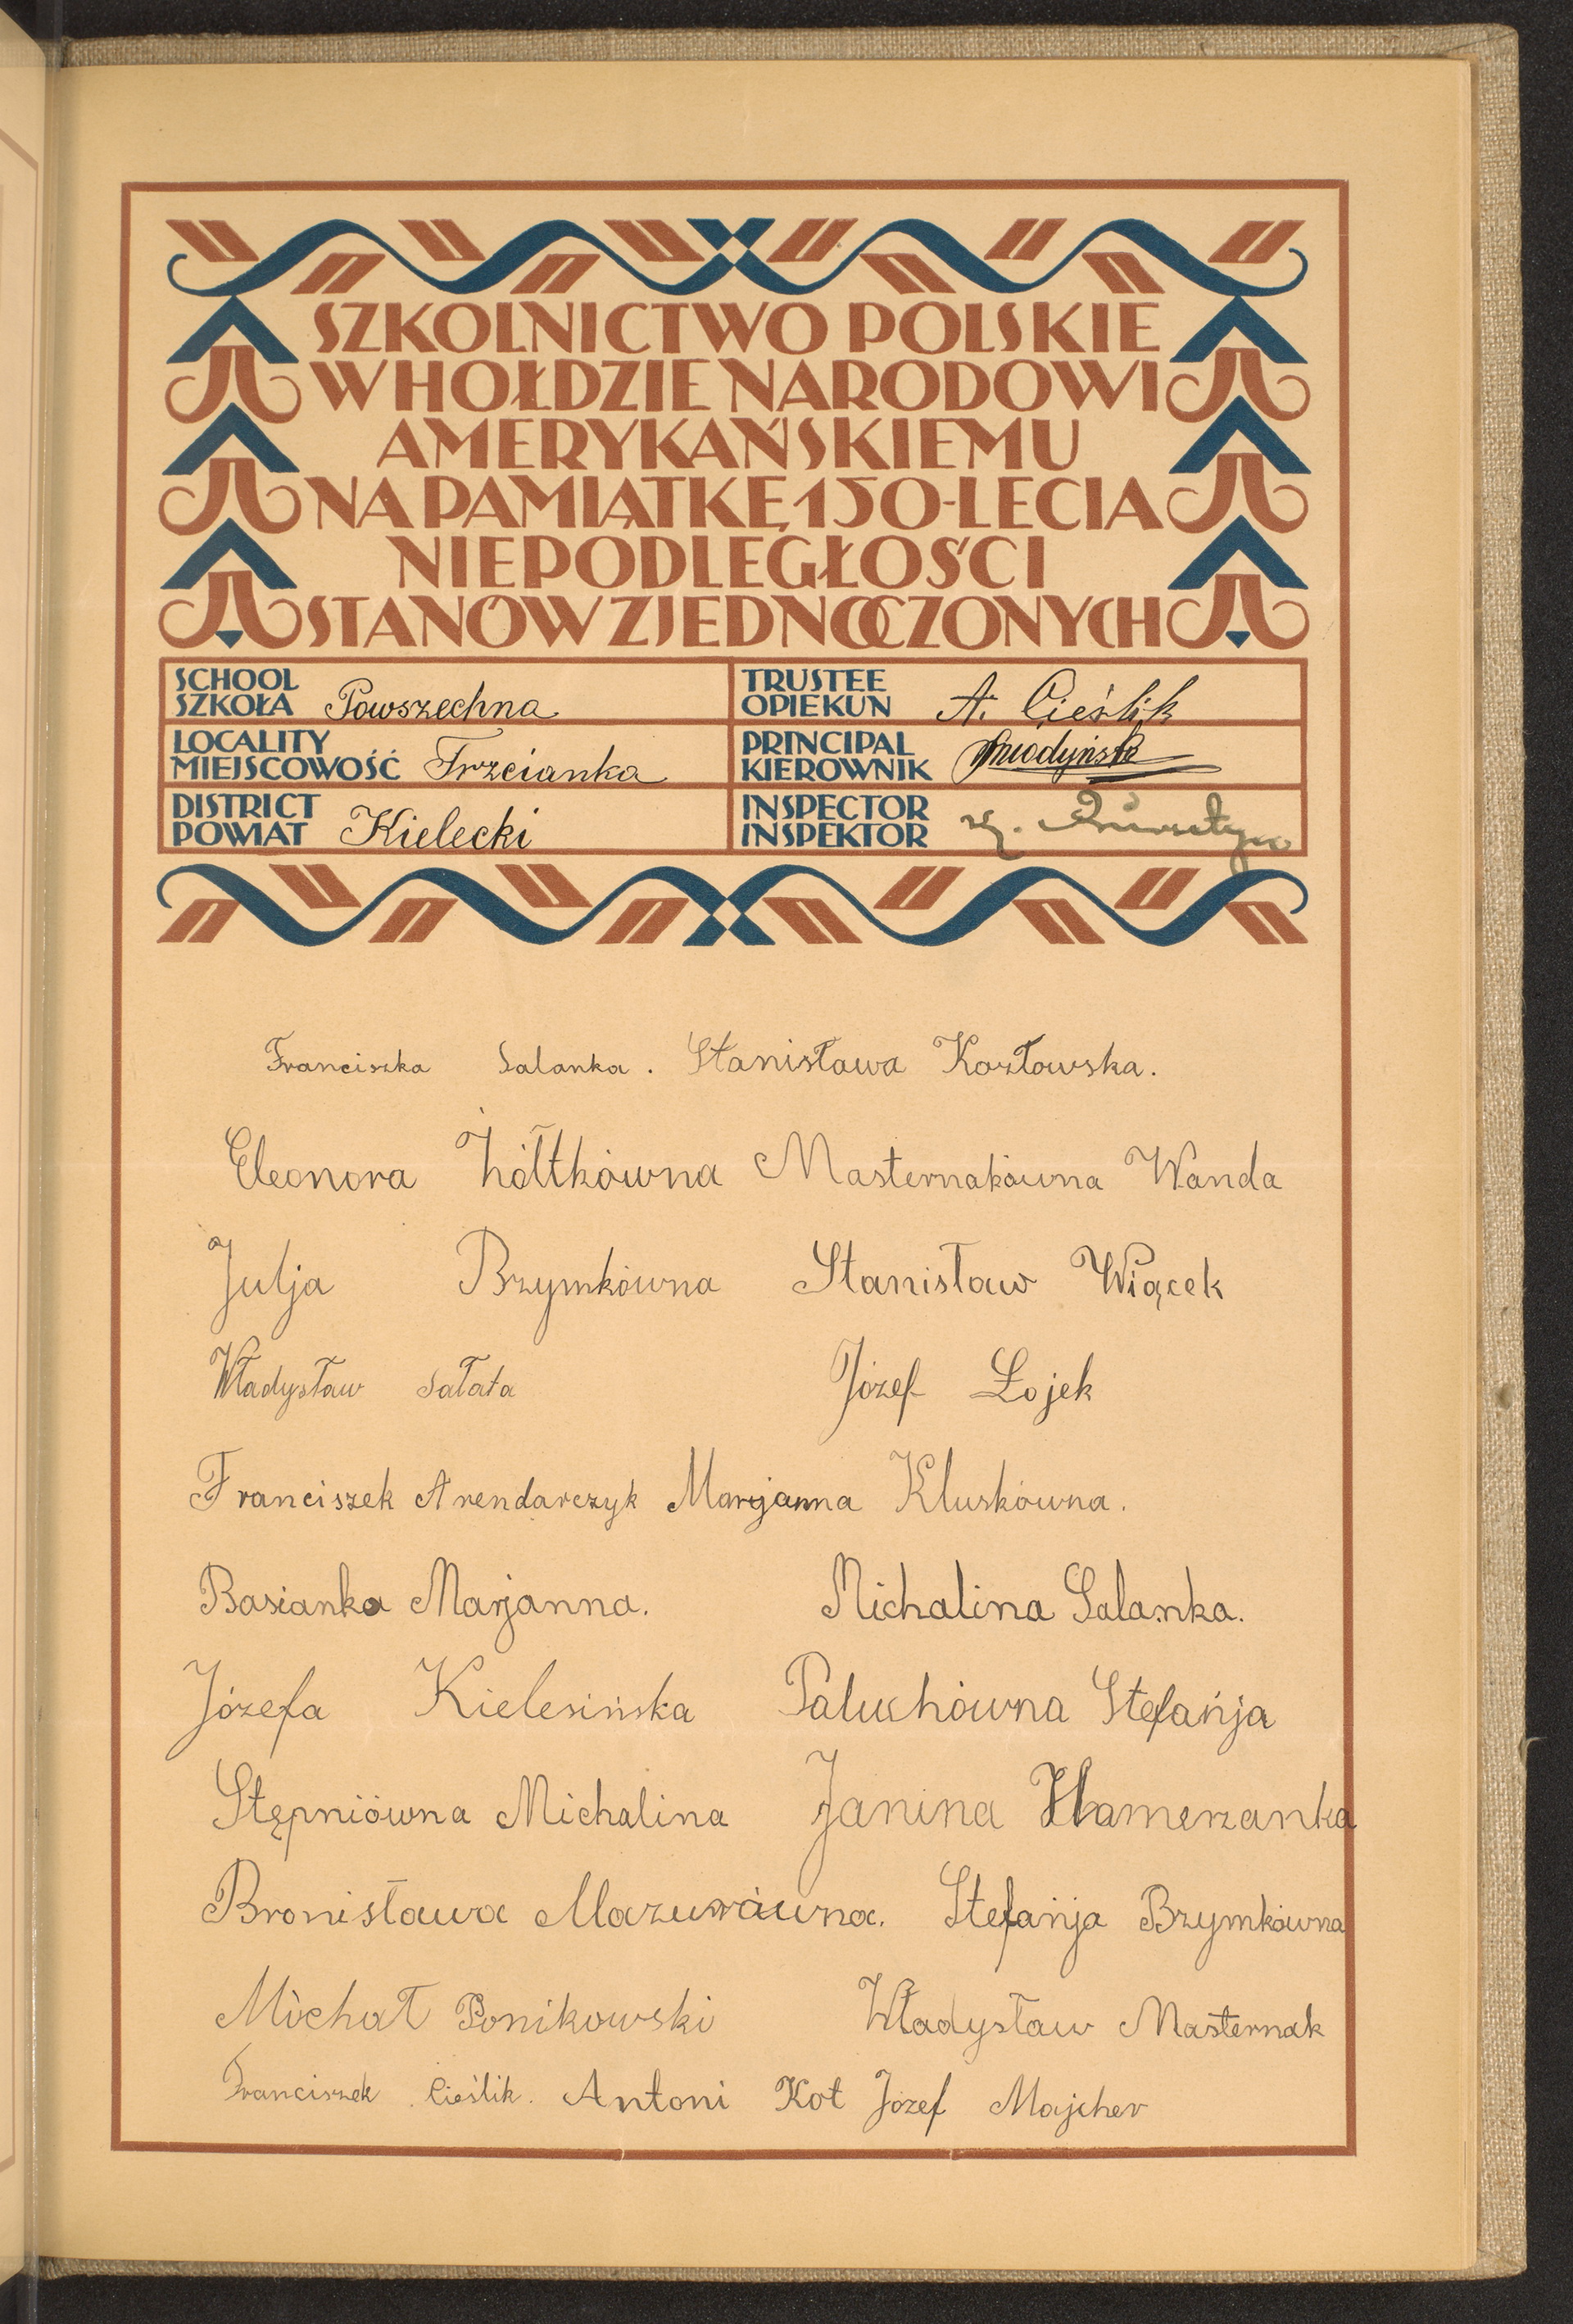 SZKOLNICTWO POLSKIE
W HOŁDZIE NARODOWI
AMERYKAŃSKIEMU
NA PAMIĄTKĘ 150-LECIA
NIEPODLEGŁOŚCI
STANÓW ZJEDNOCZONYCH
SCHOOL
SZKOŁA Powszechna
TRUSTEE
OPIEKUN A. Cieślik
LOCALITY
MIEJSCOWOŚĆ Trzcianka
PRINCIPAL
KIEROWNIK
DISTRICT
POWIAT Kielecki
INSPECTOR
INSPEKTOR
Franciszka Salanka. Stanisława Kozłowska.
Eleonora Żółtkówna Masternakówna Wanda
Julja Brzymkówna Stanisław Wiącek
Władysław Sałata Józef Łojek
Franciszek Arendarczyk Marjanna Kluskówna.
Basianka Marjanna. Michalina Salanka.
Józefa Kielesińska Paluchówna Stefańja
Stępniówna Michalina Janina Hamerzanka
Bronisława Mazurówna. Stefańja Brzymkówna
Michał Ponikowski Władysław Masternak
Franciszek Cieślik. Antoni Kot Józef Majcher